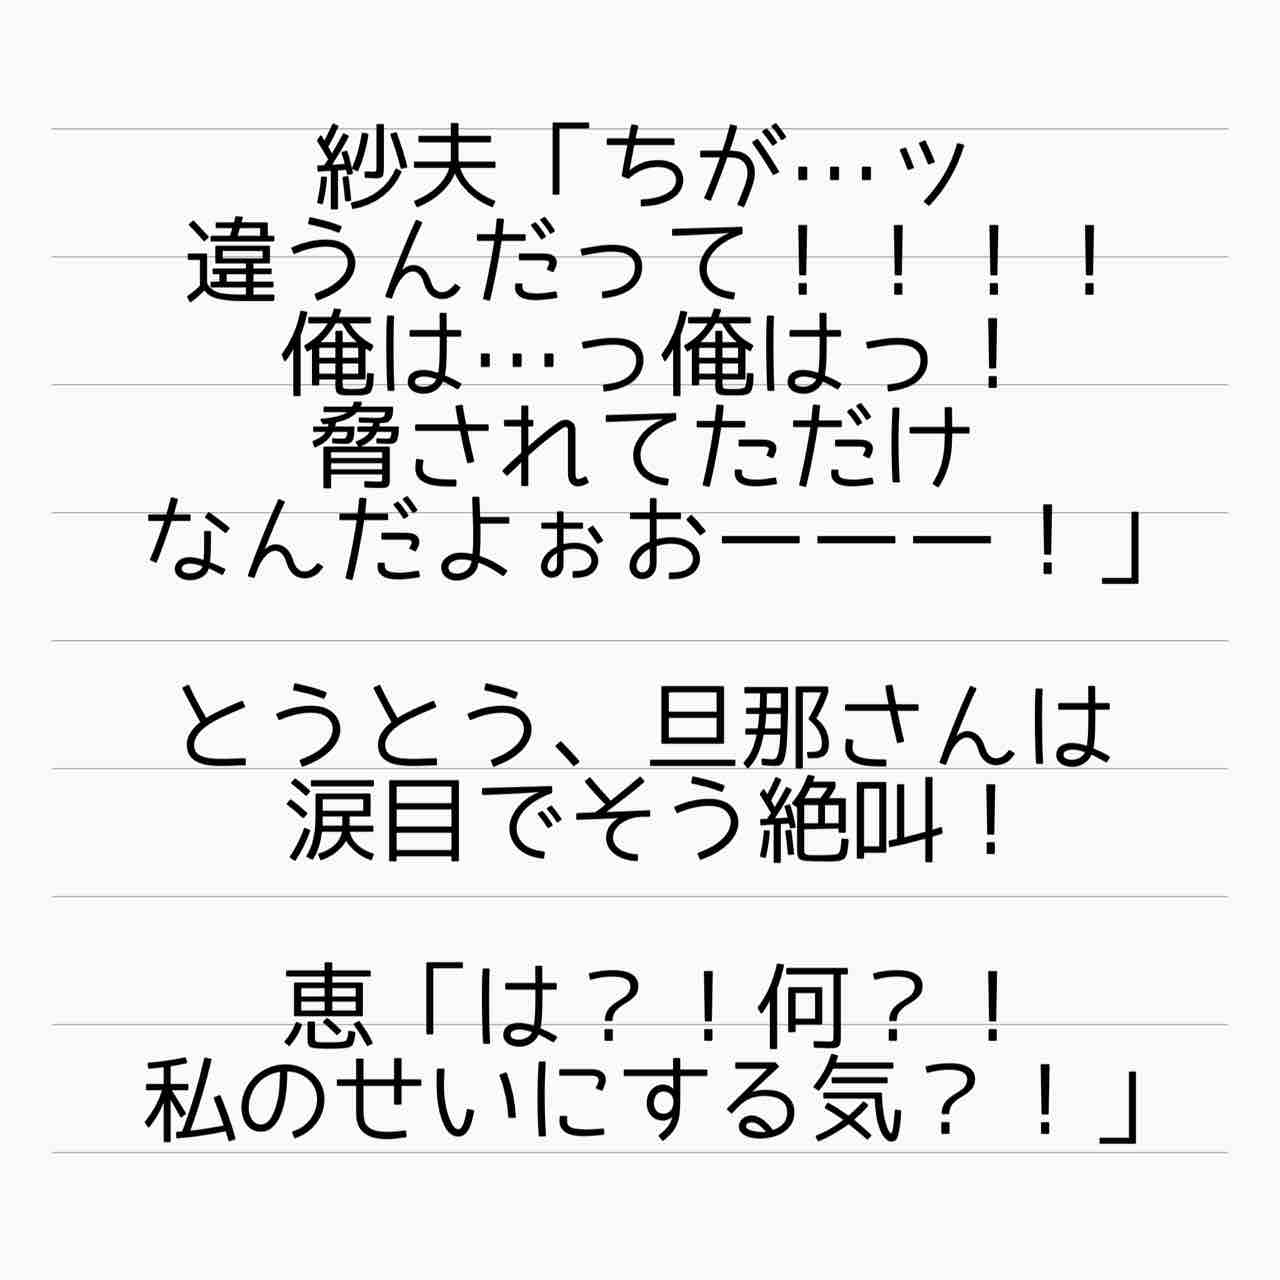 紗夫「ちが…ッ
違うんだって！！！！
俺は…っ俺はっ！
脅されてただけ
なんだよぉおーーー！」
とうとう、旦那さんは
涙目でそう絶叫！
恵「は？！何？！
私のせいにする気？！」